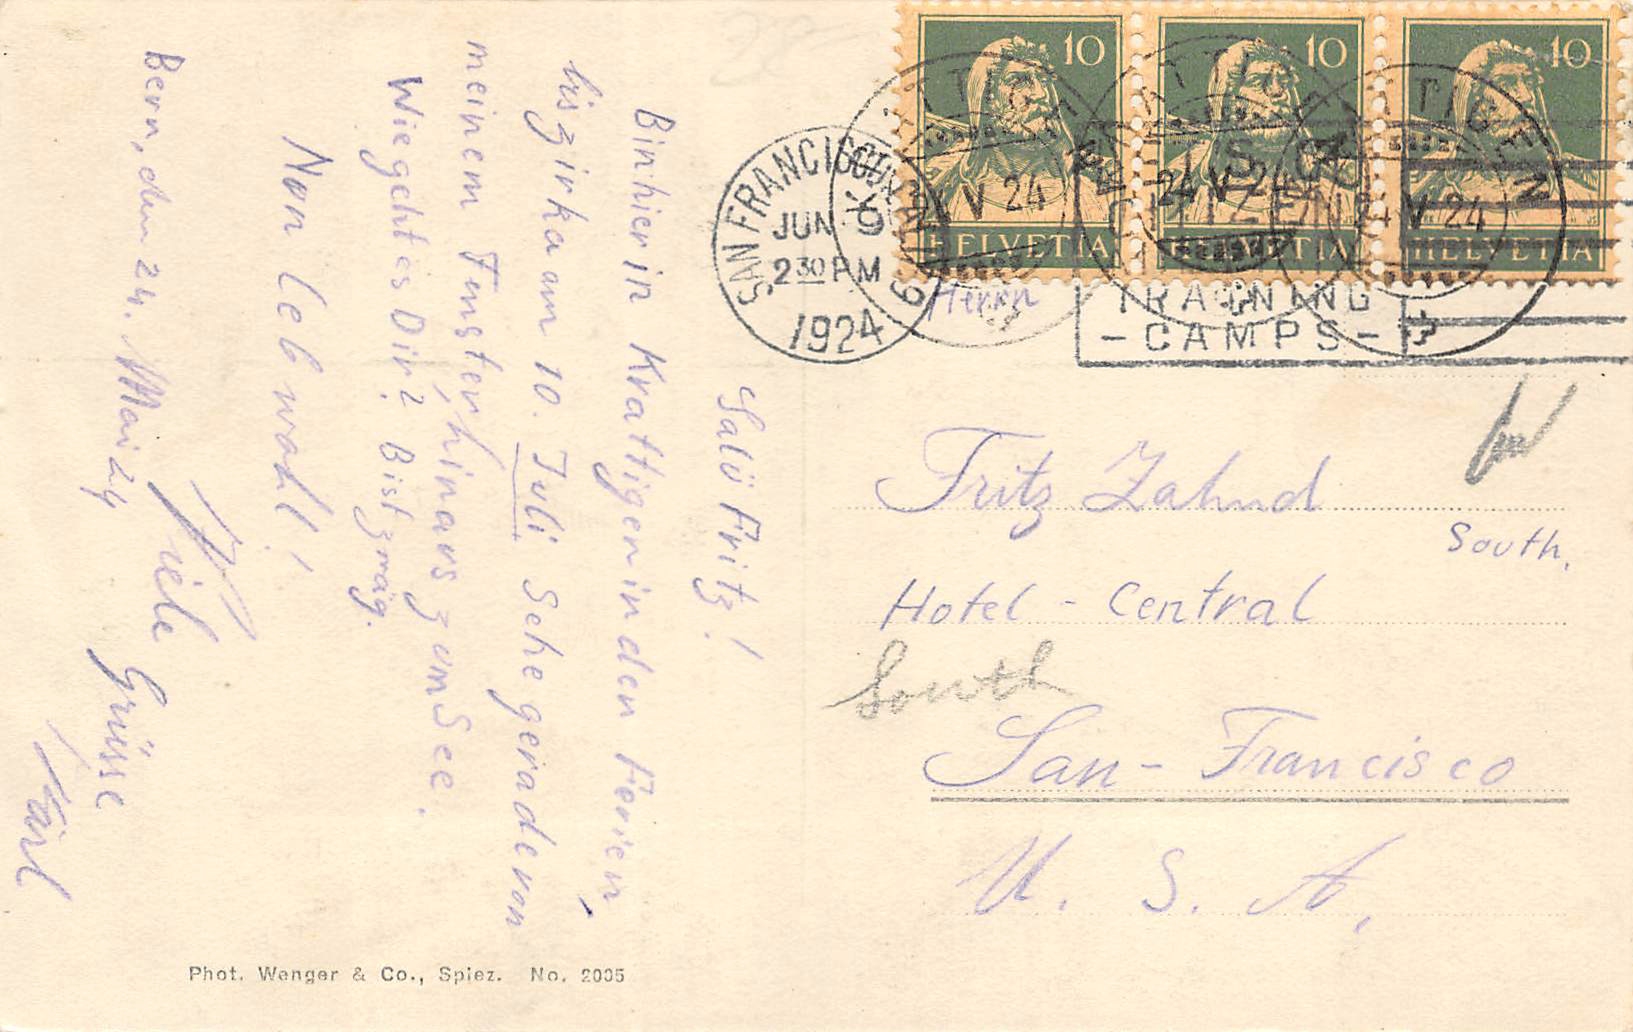 Salü Fritz!
Bin hier in Krattigen in den Ferien,
bis zirka am 10. Juli. Sehe gerade von
meinem Fenster, hinaus zum See.
Wie geht es Dir? Bist zwäg.
Nun leb wohl!
Viele Grüsse
Karl
Bern, den 24. Mai 24
Phot. Wenger & Co., Spiez. No. 2005
10
10
10
HELVETIA
HELVETIA
HELVETIA
KRATTIGEN
V 24
24 V 24
V 24
SAN FRANCISCO, CAL.
JUN 9
2 30 PM
1924
TRAINING
-CAMPS-
Herrn
Fritz Zahnd
South,
Hotel - Central
South
San-Francisco
U. S. A.